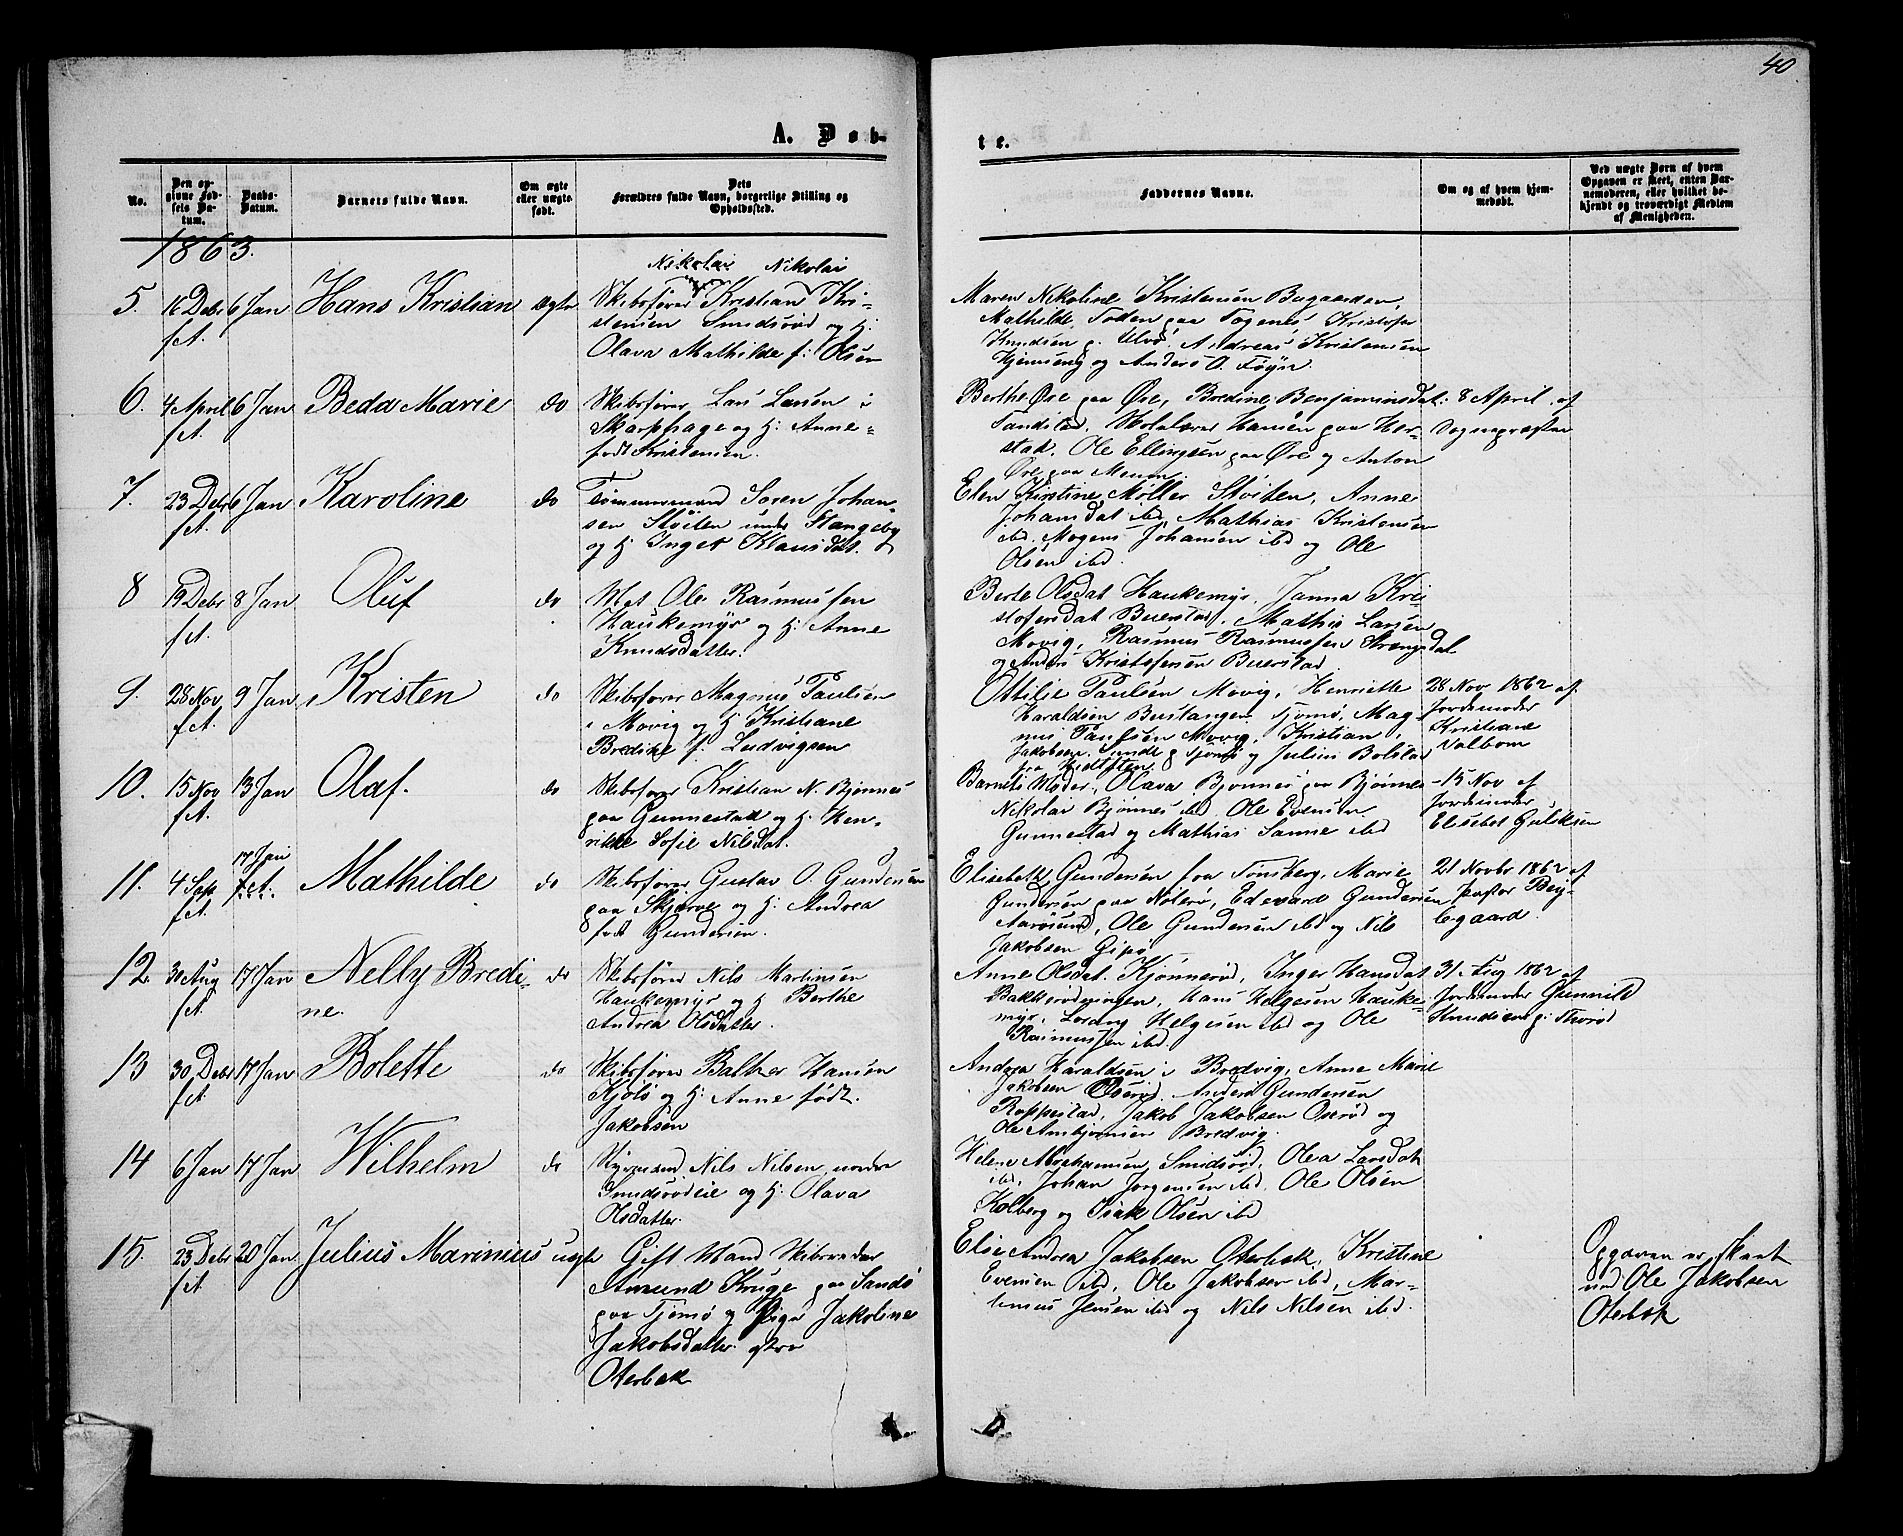 40
A. Døb-
te.
No.
Den op-
givne Fød-
sels Da-
tum.
Daabs-
Datum.
Barnets fulde Navn.
Om ægte
eller uægte
født.
Dets
Forældres fulde Navn, borgerlige Stilling og
Opholdssted.
Faddernes Navne.
Om og af hvem hjem-
medøbt.
Ved uægte Børn af hvem
Opgaven er skeet, enten Bar-
nemoderen, eller hvilket be-
kjendt og troværdigt Medlem
af Menigheden.
1863.
5. 16 Debr f.A. 6 Jan Hans Kristian ægte
Nikolai Nikolai
Skibsfører Kristian Kri-
stensen Smidsrød og H:
Olava Mathilde f: Olsen
Maren Nikoline Kristensen Bugaarden,
Mathilde Foden paa Togenes Kristofer
Knudsen p. Ulvø, Andreas Kristensen
Hjemseng og Anders O. Føyn.
6. 4 April f.A. 6 Jan Beda Marie do
Skibsfører Lars Larsen i
Skarphage og H: Anne
født Kristensen.
Berthe Øre paa Øre, Bredine Benjaminsdat:
Sandstad, Skolelærer Hansen paa Her-
stad, Ole Ellingsen paa Øre og Anton
Øre paa Meum
8 April af
Sognepræsten
7. 23 Debr f.A. 6 Jan Karoline do
Tømmermand Søren Johan-
sen Støiten under Stangeby
og H Inger Klausdat.
Elen Kirstine Møller Støiten, Anne
Johansdat ibd, Mathias Kristensen
ibd. Mogens Johansen ibd og Ole
Olsen ibd.
8 19 Debr f.A. 8 Jan Oluf do
Mat Ole Rasmussen
Haukemyr og H: Anne
Knudsdatter.
Berte Olsdat Haukemyr, Janna Kri-
stofersdat Buerstad, Mathis Larsen
Movig, Rasmus Rasmussen Strengsdal
og Anders Kristofersen Buerstad
9. 28 Nov f.A. 9 Jan Kristen do
Skibsfører Magnus Paulsen
i Movig og H Kristiane
Bredine f: Ludvigsen
Ottilie Paulsen Movig, Henriette
Haraldsen Bustangen Tjømø, Mag-
nus Paulsen Movig, Kristian
Jakobsen Sunde p Tjømø og Julius Bolstad
fra Hvidsten.
28 Nov 1862 af
Jordemoder
Kristiane
Valbom
10. 15 Nov f.A. 13 Jan Olaf. do
Skibsfører Kristian N. Bjønnes
paa Gunnestad og H: Hen-
rikke Sofie Nilsdat.
Barnets Moder, Olava Bjønnes paa Bjønnes
Nikolai Bjønnes ibd. Ole Evensen
Gunnestad og Mathias Sanne ibd
15 Nov af
Jordemoder
Elisabet Guliksen
11. 4 Sept f.A. 17 Jan f.A. Mathilde do
Skibsfører Gustav O. Gundersen
paa Skjerve og H: Andrea
født Gundersen.
Elisabeth Gundersen fra Tønsberg, Marie
Gundersen paa Nøterø, Edevard Gundersen
Aarøsund, Ole Gundersen ibd og Nils
Jakobsen Gipø
21 Novbr 1862 af
Pastor Bey-
legaard.
12. 30 Aug f.A. 17 Jan Nelly Bredi-
ne. do
Skibsfører Nils Martinsen
Haukemyr og H Berthe
Andrea Olsdatter.
Anne Olsdat. Kjønnerød, Inger Hansdat
Bakkerødningen, Hans Helgesen Hauke-
myr, Lorang Helgesen ibd og Ole
Rasmussen ibd.
31 Aug 1862 af
Jordemoder Gunnild
Knudsen p: Thorød
13 30 Debr f.A. 17 Jan Bolette do
Skibsfører Balther Hansen
Kjøls og H: Anne født
Jakobsen
Andrea Haraldsen i Bredvig, Anne Marie
Jakobsen Oserød, Anders Gundersen
Roppestad, Jakob Jakobsen Oserød og
Ole Ambjørnsen Bredvig.
14 6 Jan 17 Jan Wilhelm do
Styrmand Nils Nilsen, nordre
Smidsrødeie og H: Olava
Olsdatter.
Helene Abrahamsen Smidsrød, Olea Larsdat
ibd, Johan Jørgensen ibd. Ole Olsen
Kolberg og Isak Olsen ibd
15. 23 Debr f.A. 20 Jan Julius Marinius uægte
Gift Mand Skibsreder
Amund Kruge paa Sandø
paa Tjømø og Pige Jakoline
Jakobsdatter østre
Oterbek
Elise Andrea Jakobsen Oterbek, Kristine
Evensen ibd, Ole Jakobsen ibd, Mar-
tinius Jensen ibd og Nils Nilsen ibd.
Opgaven er skeet
ved Ole Jakobsen
Oterbek